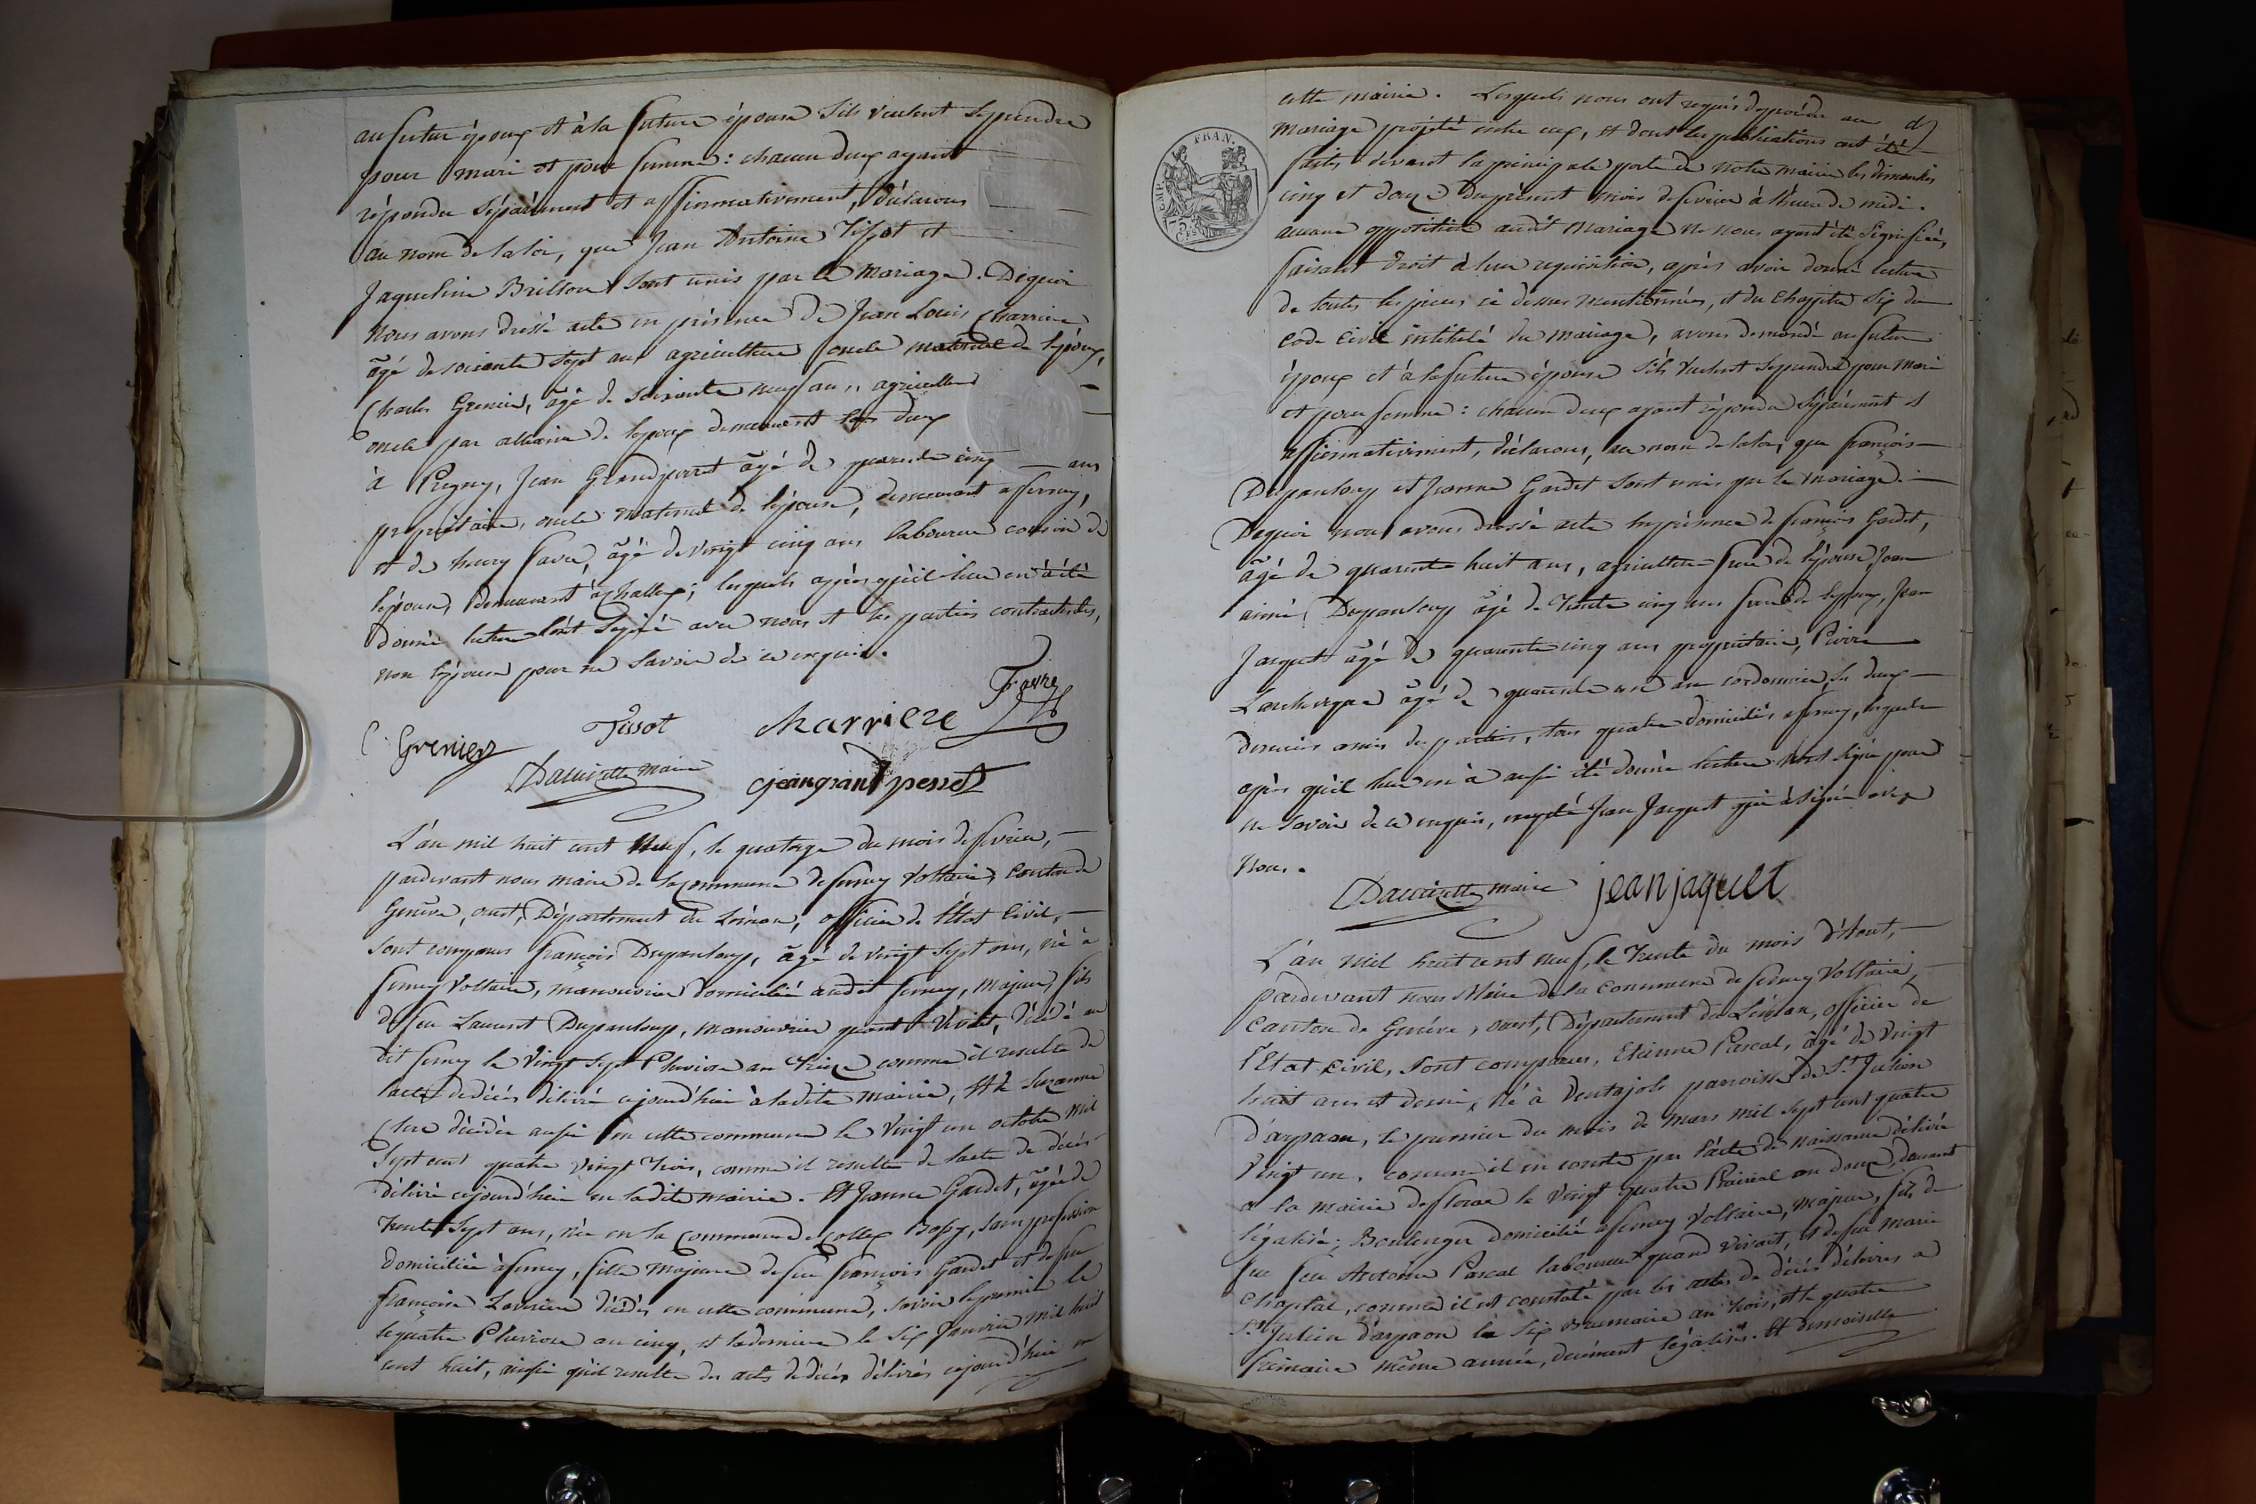 au futur époux et à la future épouse s'ils veulent se prendre
pour mari et pour femme : chacun deux ayant
répondu séparément et affirmativement, déclarons
au nom de la loi, que Jean Antoine Tissot et
Jaqueline Brillon sont unis par le mariage. Dequoi
nous avons dressé acte en présence de Jean Louis Charriere
âgé de soixante sept ans agriculteur oncle maternel de lépoux,
Charles Grenier, âgé de soixante neuf ans, agriculteur
oncle par alliance de lepoux demeurant les deux
à Pregny, Jean Grandperret âgé de quarante cinq ans
propriétaire, oncle maternel de lépouse, demeurant a fernay,
et de henry favre, âgé de vingt cinq ans laboureur cousin de
lépouse, demeurant à Challex ; lesquels après qu'il leur en à été
donné lecture l'ont signé avec nous et les parties contractantes,
non l'épouse pour ne savoir de ce enquise.
Favre
C. Grenier Tissot Charriere
maire jean grand perret
L'an mil huit cent neuf, le quatorze du mois de fevrier,
pardevant nous maire de la commune de fernay Voltaire, Canton de
Genève, ouest, Département du Léman, officier de l'État Civil,
sont comparus françois Dupanloup, âgé de vingt sept ans, né à
fernay Voltaire, manouvrier domicilié audit fernay, majeur, fils
de feu Laurent Dupanloup, manouvrier quand Vivoit, décédé au
dit fernay le Vingt sept Pluviose an treize comme il resulte de
l'acte de décès délivré cejourd'hui à ladite mairie, et de Suzanne
Clerc décédée aussi en cette commune le Vingt un octobre mil
Sept cent quatre vingt trois, comme il resulte de l'acte de décès
délivré cejourd'hui en ladite mairie. Et Jeanne Gardet, âgée de
trente sept ans, née en la Commune de Collex Bossy, sans profession
domiciliée à fernay, fille majeure de feu françois Gardet et de feu
françoise décédés en cette commune, savoir le premier le
le quatre Pluviose an cinq, et la derniere le six Janvier mil huit
cent huit, ainsi qu'il resulte des actes de décès délivrés cejourd'hui en
cette mairie. Lesquels nous ont requis de procéder au
mariage projeté entre eux, et dont les publications ont été
faites devant la principale porte de notre mairie les dimanches
cinq et douze du présent mois de fevrier à l'heure de midi.
aucune opposition audit mariage ne nous ayant été signifiée,
faisant droit à leur requisition, après avoir donné lecture
de toutes les pièces ci dessus mentionnées, et du chapitre six du
Code Civil intitulé du mariage, avons demandé au futur
époux et à la future épouse s'ils veulent se prendre pour mari
et pour femme : chacun deux ayant répondu séparément et
affirmativement, déclarons, au nom de la loi, que françois
Dupanloup et Jeanne Gardet sont unis par le mariage.
Dequoi nous avons dressé acte en présence de françois Gardet,
âgé de quarante huit ans, agriculteur frere de lépouse, Jean
aimé Dupanloup âgé de trente cinq ans frere de lepoux, Jean
Jaquet âgé de quarante cinq ans propriétaire, Pierre
âgé de quarante un ans cordonnier, les deux
derniers amis des parties, tous quatre domiciliés a fernay, lesquels
après qu'il leur en à aussi été donné lecture n'ont signé pour
ne savoir de ce enquis, excepté Jean Jaquet qui à signé avec
Nous.
maire jean jaquet
FRAN.
L'an mil huit cent neuf, le trente du mois d'Aout,
pardevant nous Maire de la commune de fernay Voltaire,
Canton de Genève, ouest, Département du Léman, officier de
l'Etat Civil, sont comparus, Etienne Pascal, âgé de vingt
huit ans et demi, né à Ventajols paroisse de St Julien
d'arpaon, le premier du mois de Mars mil sept cent quatre
Vingt un, comme il en conste par l'acte de naissance délivré
a la mairie de florac le vingt quatre Prairial an douze, dument
légalisé ; Boulanger domicilié à ferney Voltaire, majeur, fils de
feu Antoine Pascal laboureur quand vivoit, et de feu Marie
Chaptal, comme il est constaté par les actes de décès délivrés a
St Julien d'arpaon le six Brumaire an trois, et le quatre
frimaire même année, duement légalisés. Et demoiselle